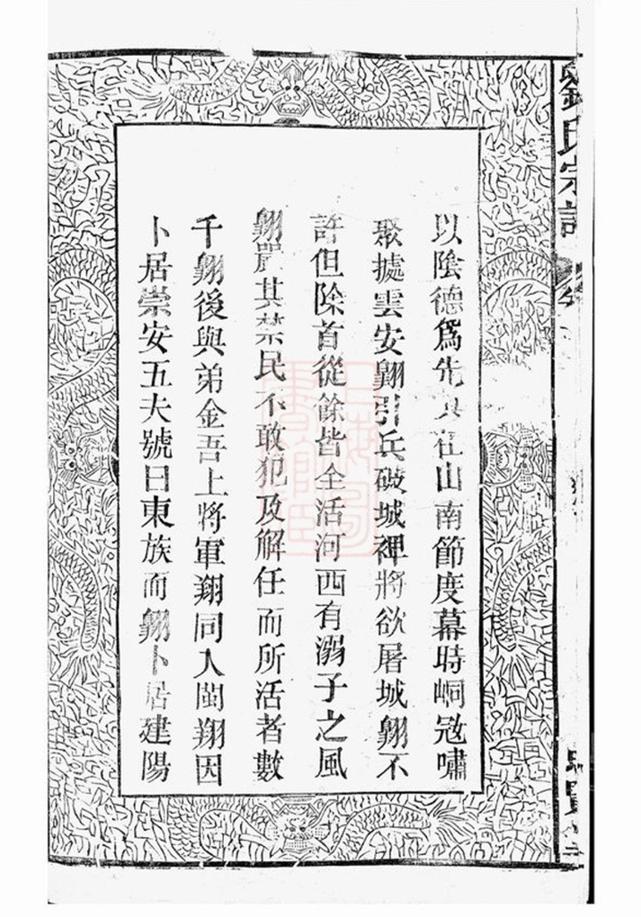 劉氏宗譜
以陰德爲先其在山南節度幕時峒宼嘯
聚據雲安翶引兵破城裨將欲屠城翶不
許但除首從餘皆全活河西有溺子之風
翶嚴其禁民不敢犯及解任而所活者數
千翶後與弟金吾上將軍翔同入閩翔因
卜居崇安五夫號曰東族而翶卜居建陽